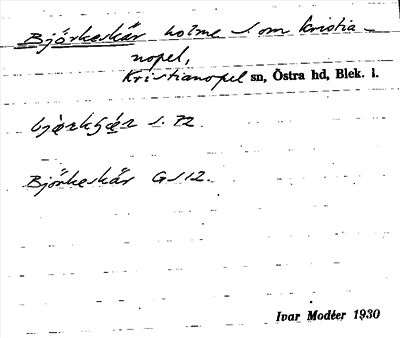 Björkeskär holme S. om Kristia-
nopel,
Kristianopel sn, Östra hd, Blek. l.
s. 72.
Björkeskär GS12.
Ivar Modéer 1930